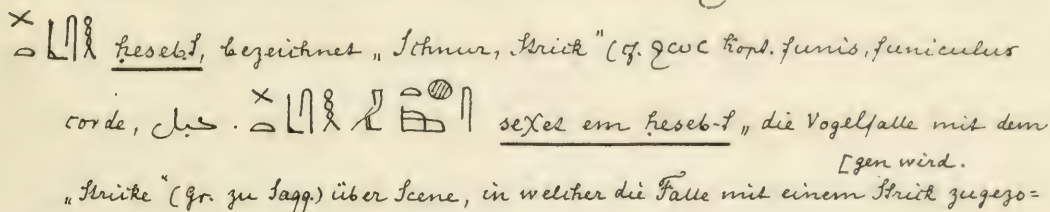 𓎛𓋴𓃀𓏏𓏴 ḥeseb-t, bezeichnet „Schnur, Strick“ (cf. ϩⲱⲥ kopt. funis, funiculus
corde, حبل. seχet em ḥeseb-t „die Vogelfalle mit dem
[gen wird.
„Stricke“ (Gr. zu Saqq.) über Scene, in welcher die Falle mit einem Strick zugezo=